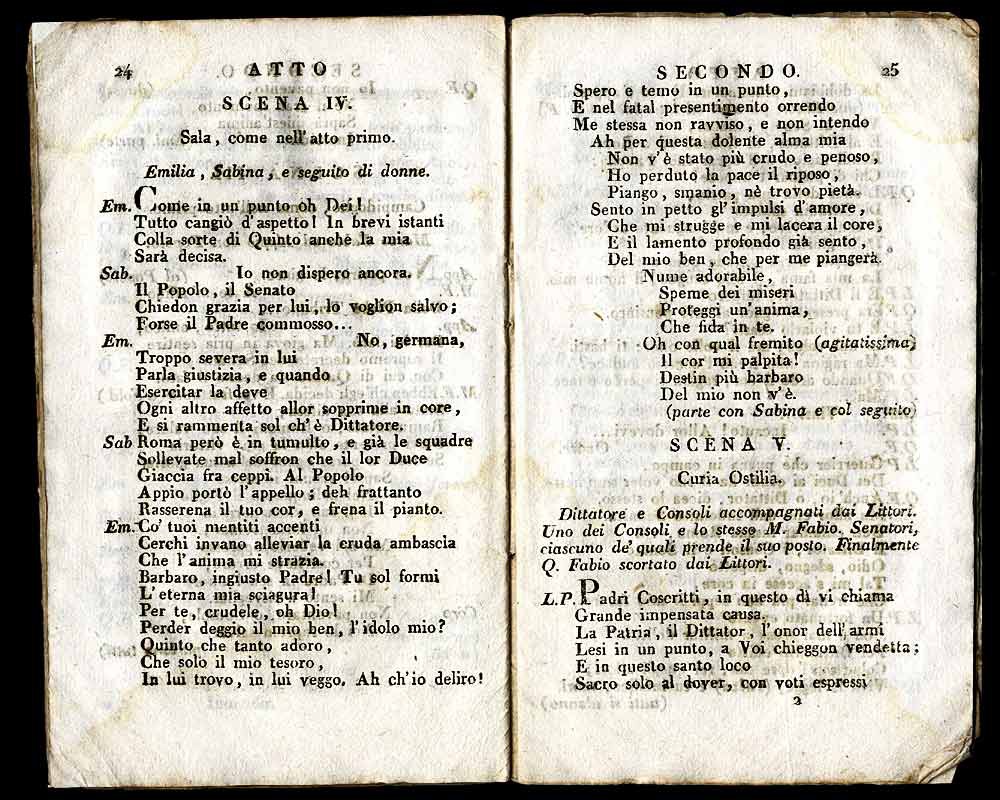 24 ATTO
SCENA IV.
Sala, come nell'atto primo.
Emilia, Sabina, e seguito di donne.
Em. Come in un punto oh Dei!
Tutto cangiò d'aspetto! In brevi istanti
Colla sorte di Quinto anche la mia
Sarà decisa.
Sab. Io non dispero ancora.
Il Popolo, il Senato
Chiedon grazia per lui, lo voglion salvo;
Forse il Padre commosso...
Em. No, germana,
Troppo severa in lui
Parla giustizia, e quando
Esercitar la deve
Ogni altro affetto allor sopprime in core,
E si rammenta sol ch'è Dittatore.
Sab Roma però è in tumulto, e già le squadre
Sollevate mal soffron che il lor Duce
Giaccia fra ceppi. Al Popolo
Appio portò l'appello; deh frattanto
Rasserena il tuo cor, e frena il pianto.
Em. Co' tuoi mentiti accenti
Cerchi invano alleviar la cruda ambascia
Che l'anima mi strazia.
Barbaro, ingiusto Padre! Tu sol formi
L'eterna mia sciagura!
Per te, crudele, oh Dio!
Perder deggio il mio ben, l'idolo mio?
Quinto che tanto adoro,
Che solo il mio tesoro,
In lui trovo, in lui veggo. Ah ch'io deliro!
SECONDO. 25
Spero e temo in un punto,
E nel fatal presentimento orrendo
Me stessa non ravviso, e non intendo
Ah per questa dolente alma mia
Non v'è stato più crudo e penoso,
Ho perduto la pace il riposo,
Piango, smanio, nè trovo pietà.
Sento in petto gl'impulsi d'amore,
Che mi strugge e mi lacera il core,
E il lamento profondo già sento,
Del mio ben, che per me piangerà.
Nume adorabile,
Speme dei miseri
Proteggi un'anima,
Che fida in te.
Oh con qual fremito (agitatissima)
Il cor mi palpita!
Destin più barbaro
Del mio non v'è.
(parte con Sabina e col seguito)
SCENA V.
Curia Ostilia.
Dittatore e Consoli accompagnati dai Littori.
Uno dei Consoli e lo stesso M. Fabio. Senatori,
ciascuno de' quali prende il suo posto. Finalmente
Q. Fabio scortato dai Littori.
L.P. Padri Coscritti, in questo dì vi chiama
Grande impensata causa.
La Patria, il Dittator, l'onor dell'armi
Lesi in un punto, a Voi chieggon vendetta;
E in questo santo loco
Sacro solo al dover, con voti espressi
2